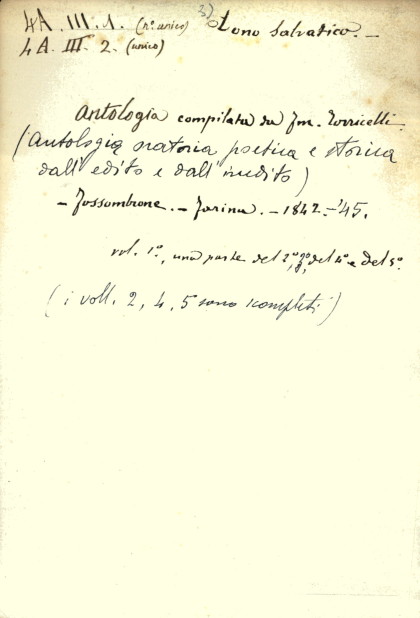 4A. III. 1. (n. unico) 3) Dono Salvatico. –
4A. III. 2. (unico)
Antologia compilata da Fm. Torricelli.
(Antologia oratoria poetica e storica
dall'edito e dall'inedito)
– Fossombrone. – Farina. – 1842–'45.
vol. 1º, una parte del 2º, 3º, del 4º e del 5º
(i voll. 2, 4, 5 sono incompleti)